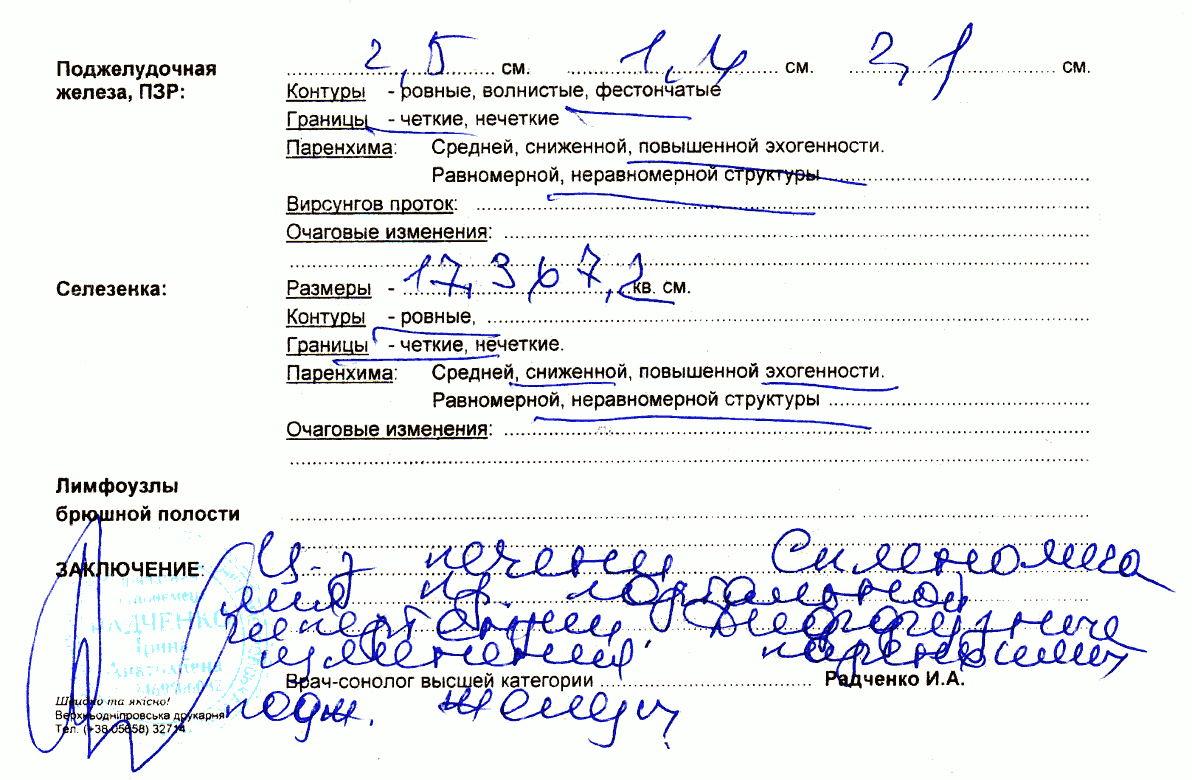 Поджелудочная 2,5 см. 1,4 см. 2,1 см.
железа, ПЗР: Контуры - ровные, волнистые, фестончатые
Границы - четкие, нечеткие
Паренхима: Средней, сниженной, повышенной эхогенности.
Равномерной, неравномерной структуры
Вирсунгов проток:
Очаговые изменения:
Селезенка: Размеры - 17,3 67,2 кв. см.
Контуры - ровные,
Границы - четкие, нечеткие.
Паренхима: Средней, сниженной, повышенной эхогенности.
Равномерной, неравномерной структуры
Очаговые изменения:
Лимфоузлы
брюшной полости
ЗАКЛЮЧЕНИЕ: Ц-з печени Спленомега
лия пр. портальной
гипертензии Диффузные
изменения паренхимы
Врач-сонолог высшей категории Радченко И.А.
подж. железы
РАДЧЕНКО
Ірина
Анатоліївна
Швидко та якісно!
Верхньодніпровська друкарня
Тел. (+38 05658) 32714